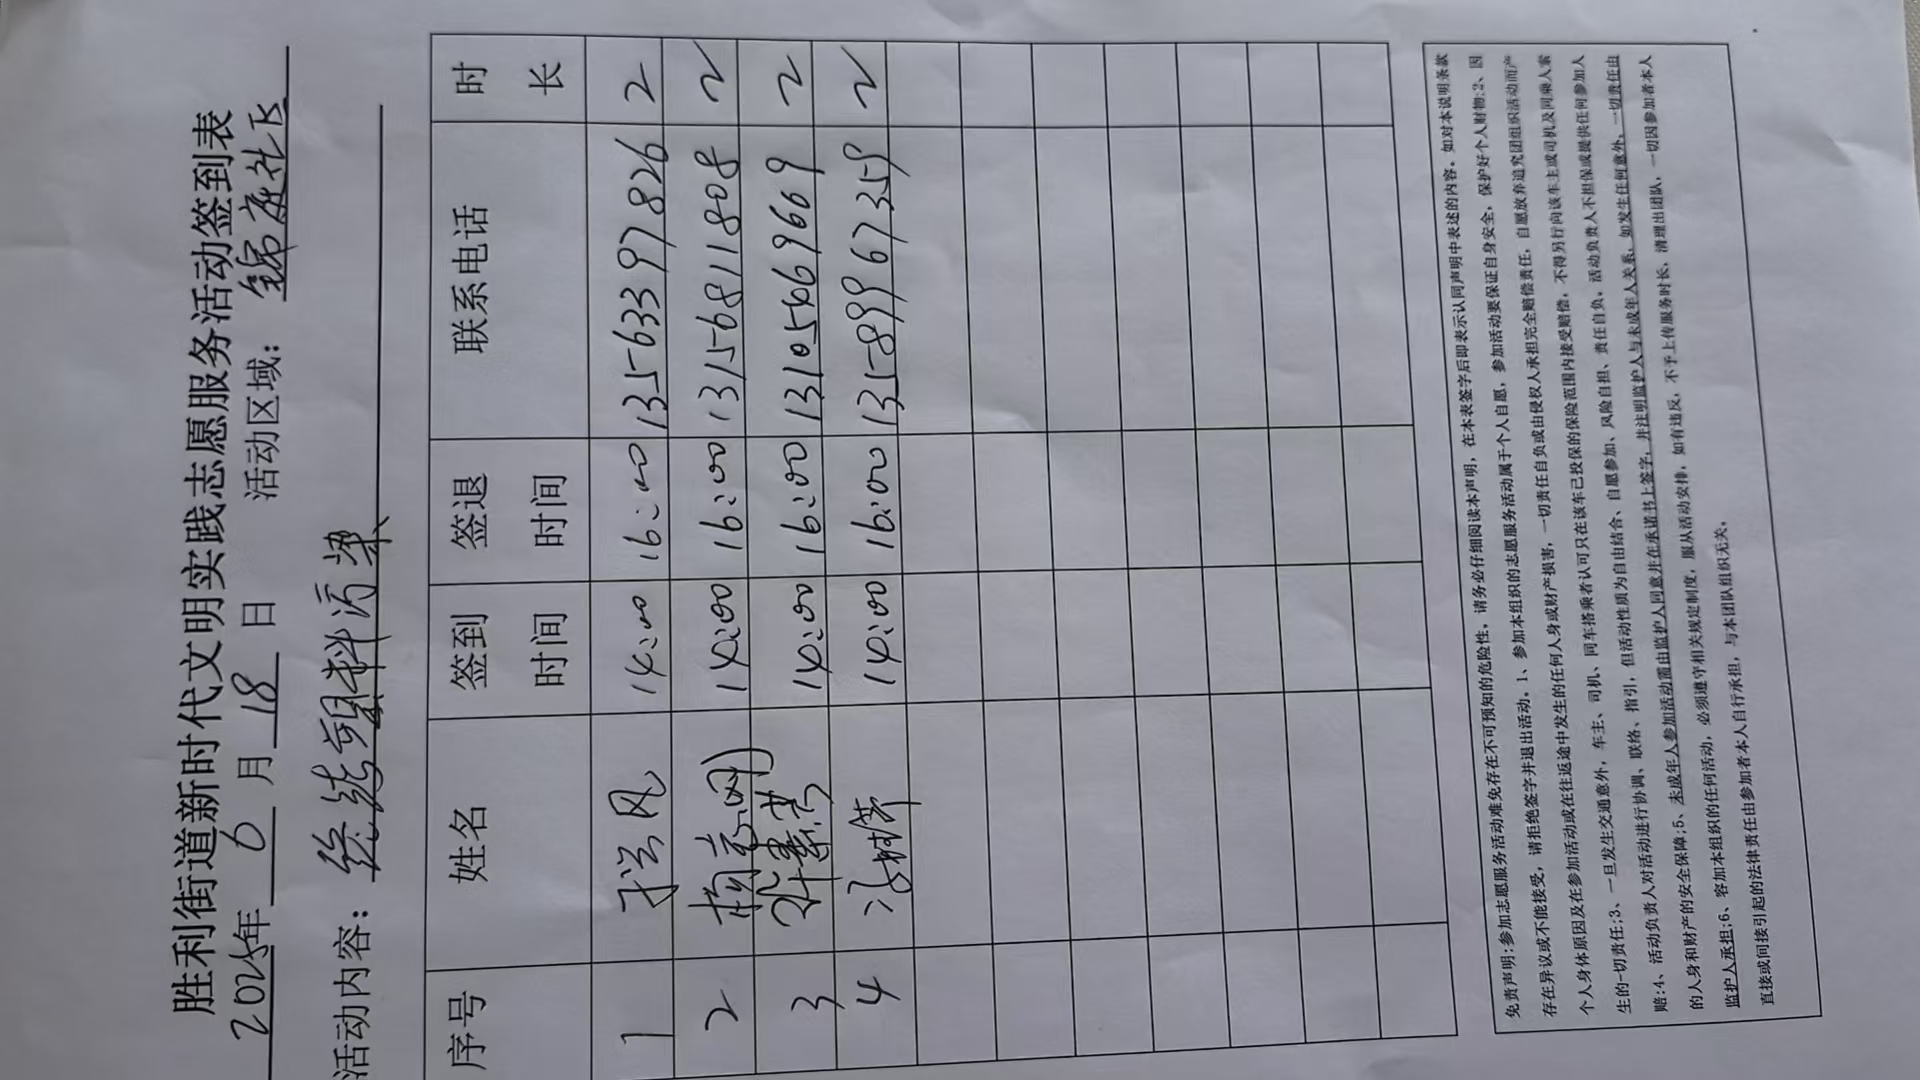 胜利街道新时代文明实践志愿服务活动签到表
2025年 6 月 18 日 活动区域: 锦康社区
活动内容: 终结塑料污染
序号 姓名 签到时间 签退时间 联系电话 时长
1 14:00 16:00 13563397826 2
2 杨志刚 14:00 16:00 13156811808 2
3 许素芸 14:00 16:00 13105469669 2
4 14:00 16:00 13589967359 2
免责声明:参加志愿服务活动难免存在不可预知的危险性, 请务必仔细阅读本声明, 在本表签字后即表示认同声明中表述的内容。如对本说明条款
存在异议或不能接受, 请拒绝签字并退出活动。1、参加本组织的志愿服务活动属于个人自愿, 参加活动要保证自身安全, 保护好个人财物;2、因
个人身体原因及在参加活动或在往返途中发生的任何人身或财产损害, 一切责任自负或由侵权人承担完全赔偿责任, 自愿放弃追究团组织活动而产
生的一切责任;3、一旦发生交通意外, 车主、司机、同车搭乘者认可只在该车已投保的保险范围内接受赔偿, 不得另行向该车主或司机及同乘人索
赔;4、活动负责人对活动进行协调、联络、指引, 但活动性质为自由结合、自愿参加、风险自担、责任自负, 活动负责人不担保或提供任何参加人
的人身和财产的安全保障;5、未成年人参加活动需由监护人同意并在承诺书上签字, 并注明监护人与未成年人关系, 如发生任何意外, 一切责任由
监护人承担;6、容加本组织的任何活动, 必须遵守相关规定制度, 服从活动安排, 如有违反, 不予上传服务时长, 清理出团队, 一切因参加者本人
直接或间接引起的法律责任由参加者本人自行承担, 与本团队组织无关。